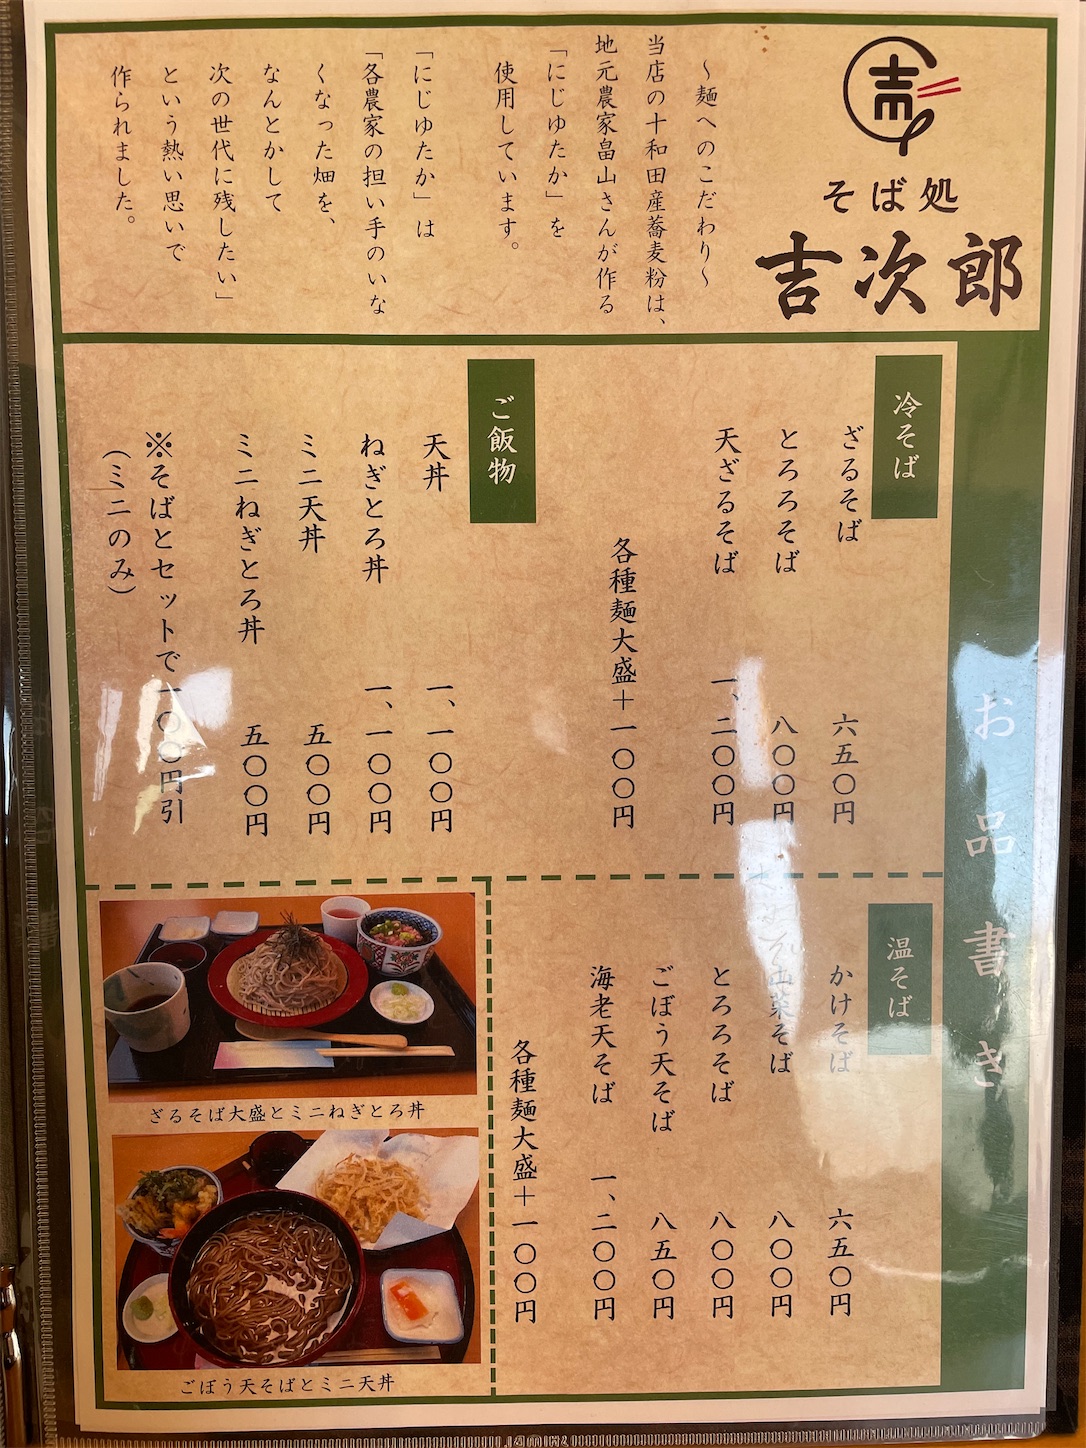 そば処
吉次郎
～麺へのこだわり～
当店の十和田産蕎麦粉は、
地元農家畠山さんが作る
「にじゆたか」を
使用しています。
「にじゆたか」は
「各農家の担い手のいな
くなった畑を、
なんとかして
次の世代に残したい」
という熱い思いで
作られました。
お品書き
冷そば
ざるそば 六五〇円
とろろそば 八〇〇円
天ざるそば 一、二〇〇円
各種麺大盛＋一〇〇円
ご飯物
天丼 一、一〇〇円
ねぎとろ丼 一、一〇〇円
ミニ天丼 五〇〇円
ミニねぎとろ丼 五〇〇円
※そばとセットで一〇〇円引
（ミニのみ）
温そば
かけそば 六五〇円
山菜そば 八〇〇円
とろろそば 八〇〇円
ごぼう天そば 八五〇円
海老天そば 一、二〇〇円
各種麺大盛＋一〇〇円
ざるそば大盛とミニねぎとろ丼
ごぼう天そばとミニ天丼